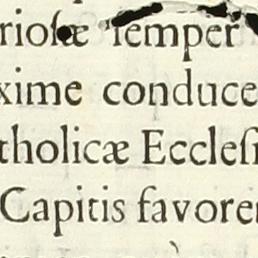 rioſæ ſemper
xime conduce
tholicæ Eccleſi
Capitis favorem